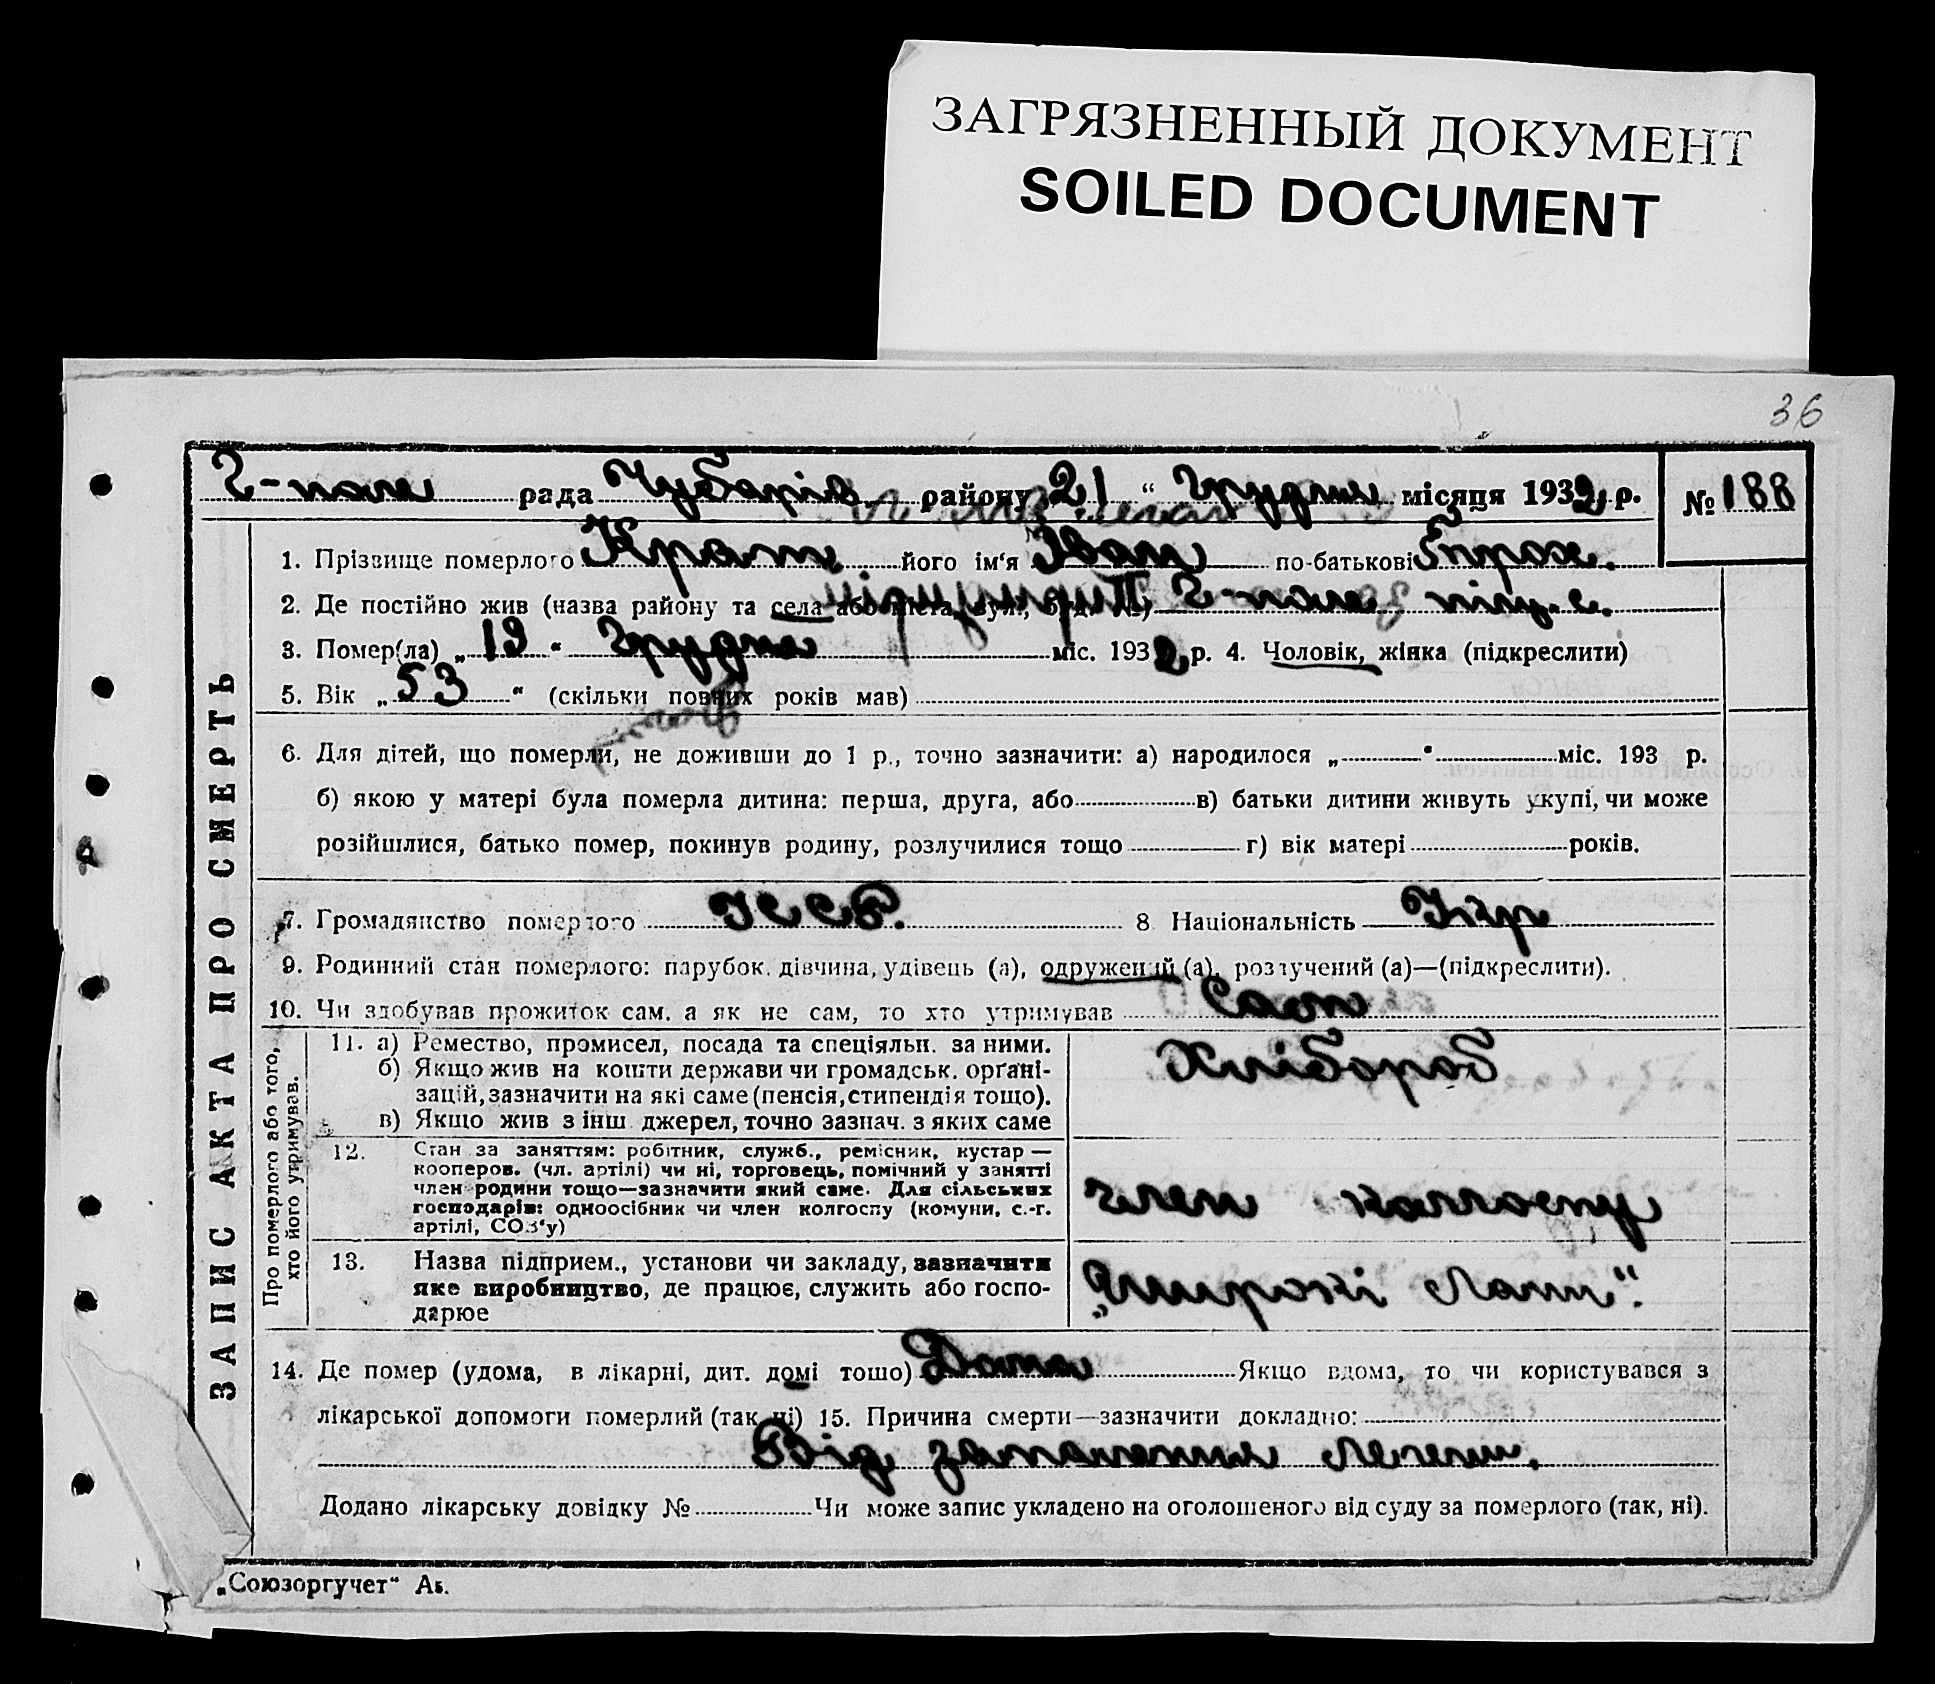 ЗАГРЯЗНЕННЫЙ ДОКУМЕНТ
SOILED DOCUMENT
36
рада району „21“ Грудня місяця 1932 р. № 188
ЗАПИС АКТА ПРО СМЕРТЬ
1. Прізвище померлого його ім‘я Іван по-батькові
2. Де постійно жив (назва району та села або міста, вул.,
3. Помер(ла) „19“ Грудня міс. 1932 р. 4. Чоловік, жінка (підкреслити)
5. Вік „53“ (скільки повних років мав)
6. Для дітей, що померли, не доживши до 1 р., точно зазначити: а) народилося „ “ міс. 193 р.
б) якою у матері була померла дитина: перша, друга, або в) батьки дитини живуть укупі, чи може
розійшлися, батько помер, покинув родину, розлучилися тощо г) вік матері років.
7. Громадянство померлого УССР. 8 Національність Укр
9. Родинний стан померлого: парубок, дівчина, удівець (а), одружений (а), розлучений (а)—(підкреслити).
10. Чи здобував прожиток сам, а як не сам, то хто утримував Сам
Про померлого або того,
хто його утримував.
11. а) Ремество, промисел, посада та спеціяльн. за ними.
б) Якщо жив на кошти держави чи громадськ. органі-
зацій, зазначити на які саме (пенсія, стипендія тощо).
в) Якщо жив з інш. джерел, точно зазнач. з яких саме
Хлібороб
12. Стан за заняттям: робітник, служб., ремісник, кустар —
кооперов. (чл. артілі) чи ні, торговець, помічний у занятті
член родини тощо—зазначити який саме. Для сільських
господарів: одноосібник чи член колгоспу (комуни, с.-г.
артілі, СОЗ‘у)
член колгоспу
13. Назва підприєм., установи чи закладу, зазначити
яке виробництво, де працює, служить або госпо-
дарює
„Широкі Лани“.
14. Де помер (удома, в лікарні, дит. домі тощо) Дома Якщо вдома, то чи користувався з
лікарської допомоги померлий (так, ні) 15. Причина смерти—зазначити докладно:
Від запалення легень.
Додано лікарську довідку № Чи може запис укладено на оголошеного від суду за померлого (так, ні).
„Союзоргучет“